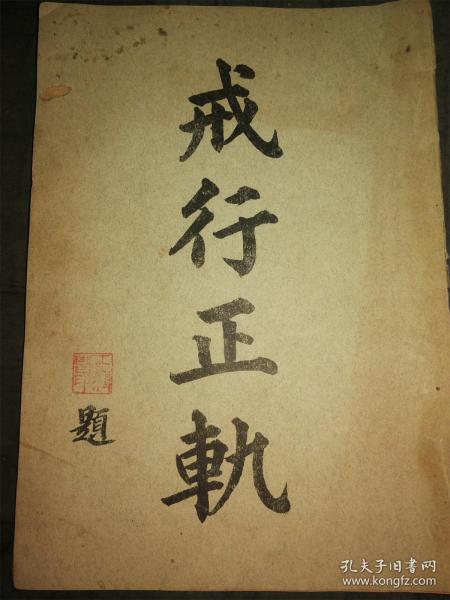 戒行正軌
題
孔夫子旧书网
www.kongfz.com